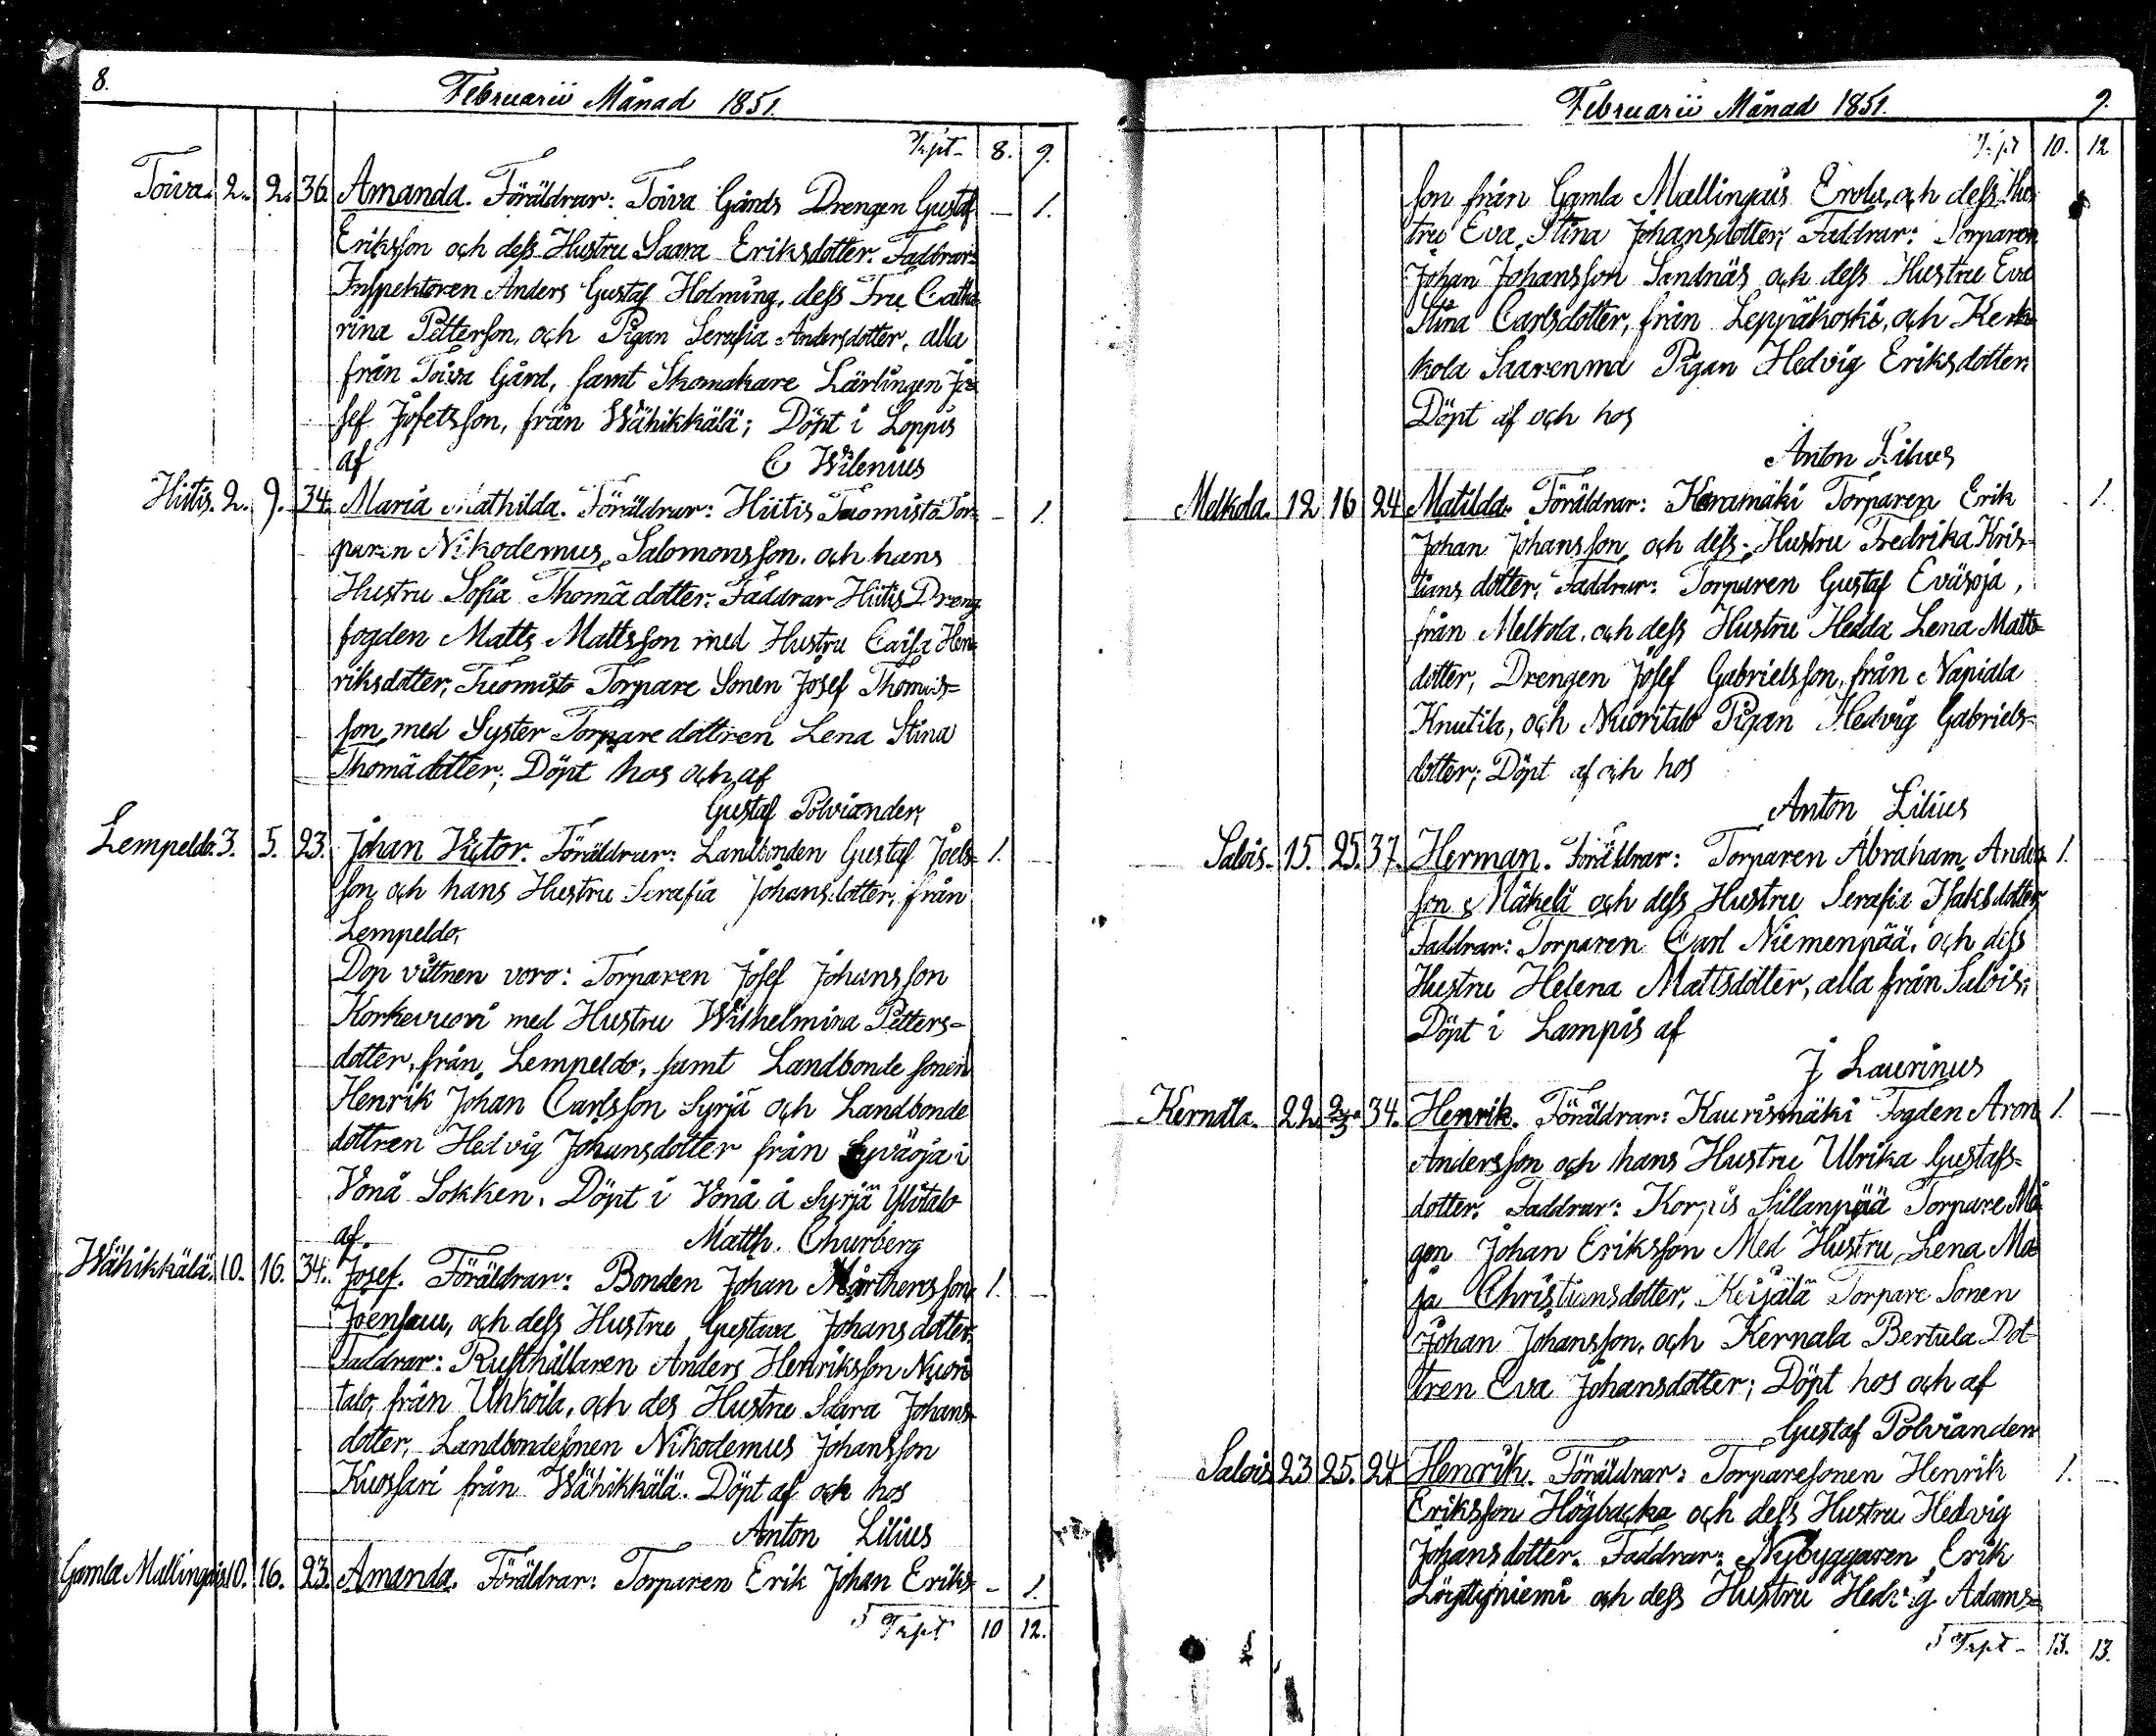 8.
Februarii Månad 1851.
Trspt - 8. 9.
Toiva. 2. 2. 36. Amanda. Föräldrar: Toiva Gårds Drengen Gustaf - 1.
Eriksson och dess Hustru Saara Eriksdotter. Faddrar:
Inspektoren Anders Gustaf Holming, dess Fru Catha
rina Petterson, och Pigan Serafia Andersdotter, alla
från Toiva Gård, samt Skomakare Lärlingen Jo=
sef Josefsson, från Wähikkälä; Döpt i Loppis
af C Wilenius
Hiitis. 2. 9. 34. Maria Mathilda. Föräldrar: Hiitis Tuomisto Tor= - 1.
paren Nikodemus Salomonsson och hans
Hustru Sofia Thomä dotter. Faddrar Hiitis Dreng
fogden Matts Mattsson med Hustru Caisa Hen=
riksdotter, Tuomisto Torpare Sonen Josef Thomas=
son med Syster Torpare dottren Lena Stina
Thomä dotter; Döpt hos och af
Gustaf Polviander,
Lempeldo. 3. 5. 23. Johan Victor. Föräldrar: Landbonden Gustaf Joels= 1. -
son och hans Hustru Serafia Johansdotter, från
Lempeldo,
Dop vittnen voro: Torparen Josef Johansson
Korkevuori med Hustru Wilhelmina Petters=
dotter, från Lempeldo, samt Landbonde sonen
Henrik Johan Carlsson Syrjä och Landbonde
dottren Hedvig Johansdotter från Syväoja i
Vonå Sokken. Döpt i Vonå å Syrjä Ylitalo
af. Matth. Churberg
Wähikkälä. 10. 16. 34. Josef. Föräldrar: Bonden Johan Mårthensson 1. -
Joensuu, och dess Hustru Gustava Johans dotter.
Faddrar: Rusthållaren Anders Henriksson Nuori
talo, från Uhkoila, och des Hustru Saara Johans=
dotter, Landbondesonen Nikodemus Johansson
Kuossari från Wähikkälä. Döpt af och hos
Anton Lilius
Gamla Mallingais 10. 16. 23. Amanda. Föräldrar: Torparen Erik Johan Eriks= - 1.
Trspt 10 12.
Februarii Månad 1851. 9.
Trspt 10. 12
son från Gamla Mallingais Erola, och dess Hus=
tru Eva Stina Johansdotter; Faddrar: Torparen
Johan Johansson Sandnäs och dess Hustru Eva
Stina Carlsdotter, från Leppäkoski, och Kerk=
kola Saarenma Pigan Hedvig Eriksdotter.
Döpt af och hos
Anton Lilius
Melkola. 12 16 24 Matilda. Föräldrar: Haramäki Torparen Erik - 1.
Johan Johansson och dess Hustru Fredrika Kris=
tians dotter, Faddrar: Torparen Gustaf Eväsoja,
från Melkola, och dess Hustru Hedda Lena Matts=
dotter, Drengen Josef Gabrielsson, från Napiala
Knutila, och Nuoritalo Pigan Hedvig Gabriels=
dotter; Döpt af och hos
Anton Lilius
Salois. 15. 25. 37. Herman. Föräldrar: Torparen Abraham Anders= 1. -
son Mäkelä och dess Hustru Serafia Isaksdotter,
Faddrar: Torparen Carl Niemenpää, och dess
Hustru Helena Mattsdotter, alla från Salois;
Döpt i Lampis af
J Laurinus
Kernala. 22. 2/3. 34. Henrik. Föräldrar: Kaurismäki Fogden Aron 1. -
Andersson och hans Hustru Ulrika Gustafs=
dotter. Faddrar: Korpis Sillanpää Torpare Må
gen Johan Eriksson Med Hustru Lena Ma=
ja Christiansdotter, Torpare Sonen
Johan Johansson, och Kernala Bertula Dot=
tren Eva Johansdotter; Döpt hos och af
Gustaf Polviander
Salois 23 25. 24 Henrik. Föräldrar: Torparesonen Henrik 1. -
Eriksson Högbacka och dess Hustru Hedvig
Johans dotter. Faddrar: Nybyggaren Erik
Löyttyniemi och dess Hustru Hedvig Adams=
Trspt - 13. 13.